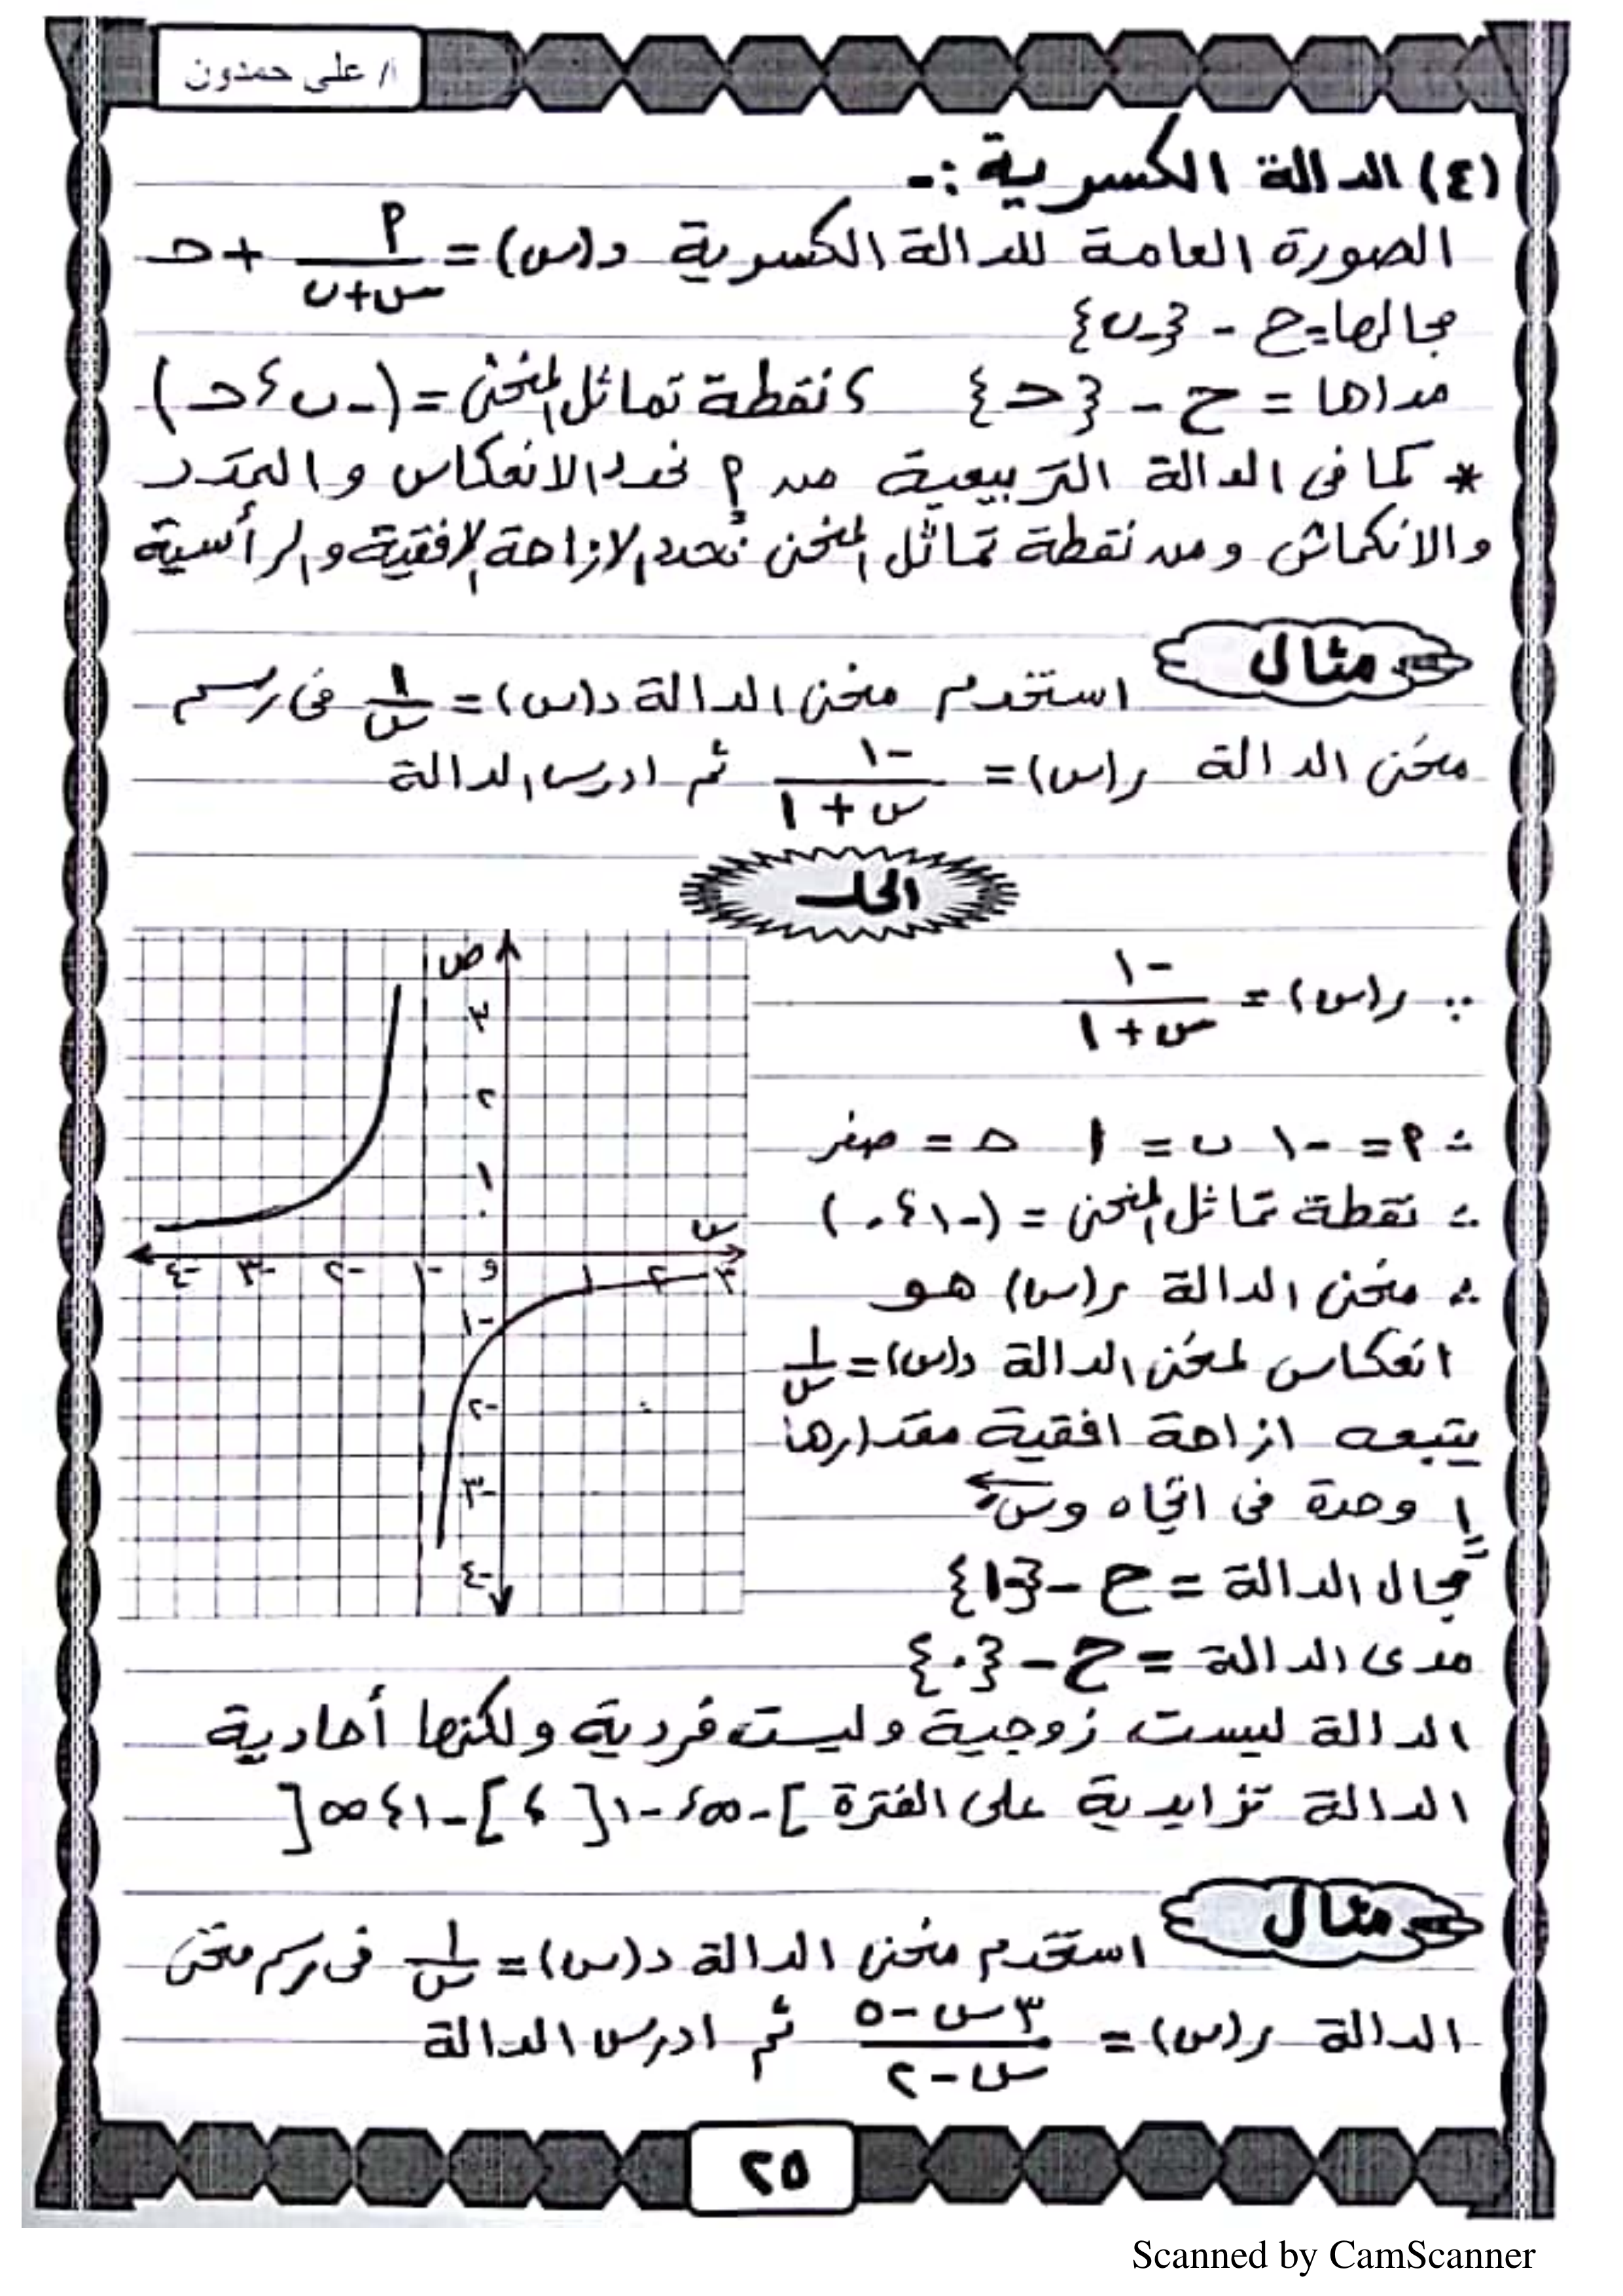 أ/ على حمدون
(٤) الدالة الكسرية :-
الصورة العامة للدالة الكسرية د(س) = م/(س+ب) + ح
مجالها = ح - {-ب}
مداها = ح - {ح} ، نقطة تماثل المنحنى = (-ب ، ح)
* كما فى الدالة التربيعية من م نحدد الانعكاس والتمدد
والانكماش ومن نقطة تماثل المنحنى نحدد الازاحة الافقية والرأسية
مثال استخدم منحنى الدالة د(س) = ١/س فى رسم
منحنى الدالة ر(س) = -١/(س+١) ثم ادرس الدالة
الحل
∵ ر(س) = -١/(س+١)
∴ م = -١ ب = ١ ح = صفر
∴ نقطة تماثل المنحنى = (-١ ، ٠)
∴ منحنى الدالة ر(س) هو
انعكاس لمنحنى الدالة د(س) = ١/س
يتبعه ازاحة افقية مقدارها
١ وحدة فى اتجاه وس
مجال الدالة = ح - {-١}
مدى الدالة = ح - {٠}
ص
٣
٢
١
٠
س
-٤ -٣ -٢ -١ و ١ ٢ ٣
-١
-٢
-٣
-٤
الدالة ليست زوجية وليست فردية ولكنها أحادية
الدالة تزايدية على الفترة ]-∞ ، -١[ ، ]-١ ، ∞[
مثال استخدم منحنى الدالة د(س) = ١/س فى رسم منحنى
الدالة ر(س) = (٣س-٥)/(س-٢) ثم ادرس الدالة
٢٥
Scanned by CamScanner